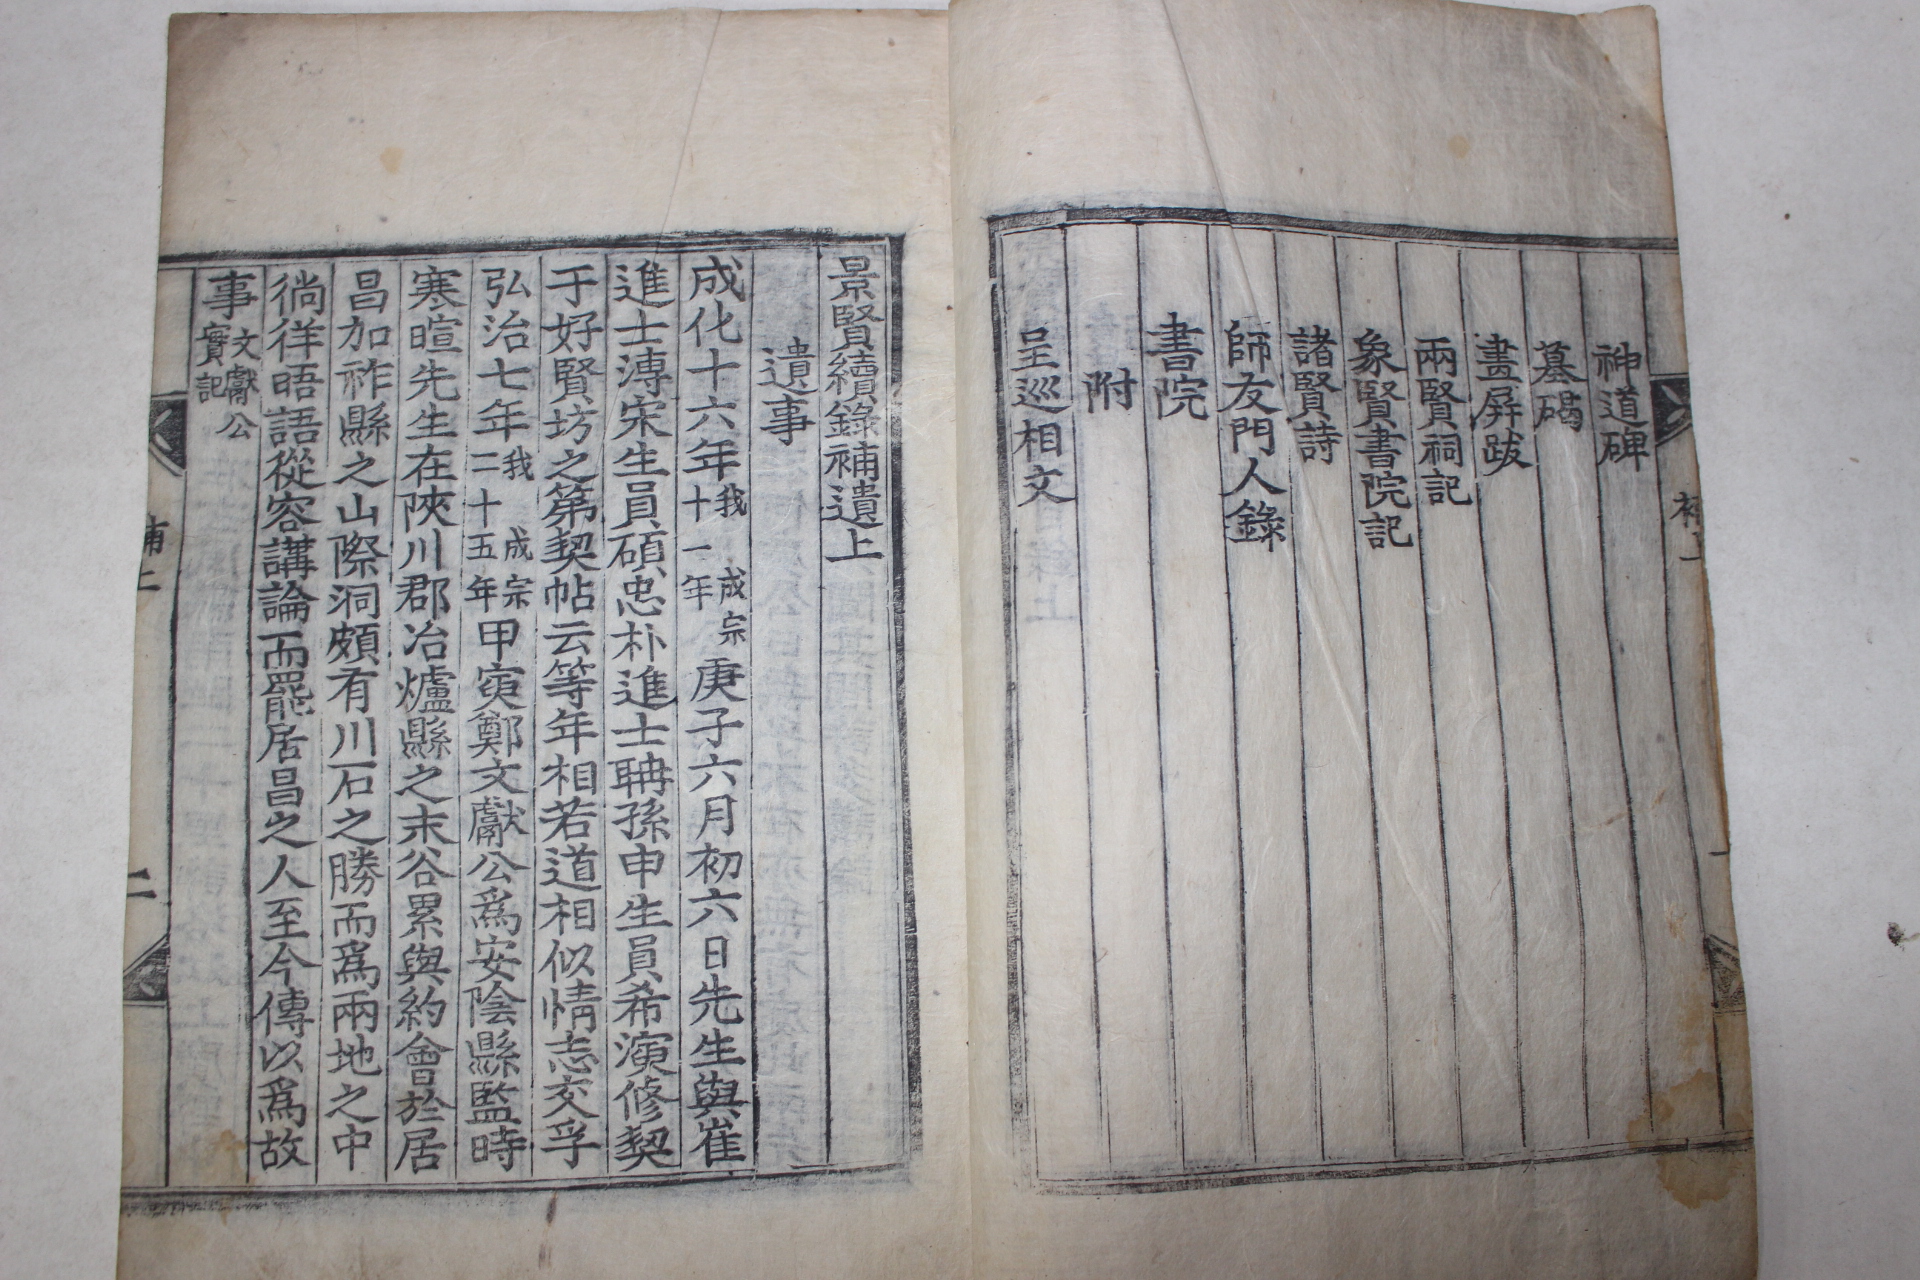 神道碑
墓碣
畫屛跋
兩賢祠記
象賢書院記
諸賢詩
師友門人錄
書院
附
呈巡相文
景賢續錄補遺上
遺事
成化十六年我 成宗十一年庚子六月初六日先生與崔
進士溥宋生員碩忠朴進士聃孫申生員希演修契
于好賢坊之第契帖云等年相若道相似情志交孚
弘治七年我 成宗二十五年甲寅鄭文獻公爲安陰縣監時
寒暄先生在陜川郡冶爐縣之末谷累與約會於居
昌加祚縣之山際洞頗有川石之勝而爲兩地之中
徜徉晤語從容講論而罷居昌之人至今傳以爲故
事文獻公實記
補上
二